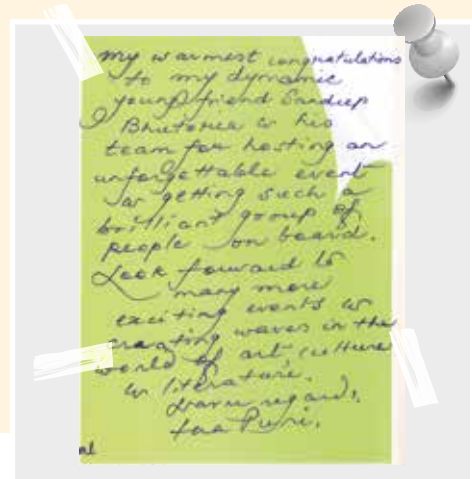 My warmest congratulations
to my dynamic
young friend Sandeep
Bhutoria & his
team for hosting an
unforgettable event
& getting such a
brilliant group of
people on board.
Look forward to
many more
exciting events &
creating waves in the
world of art, culture
& literature.
Warm regards,
Puri.
al